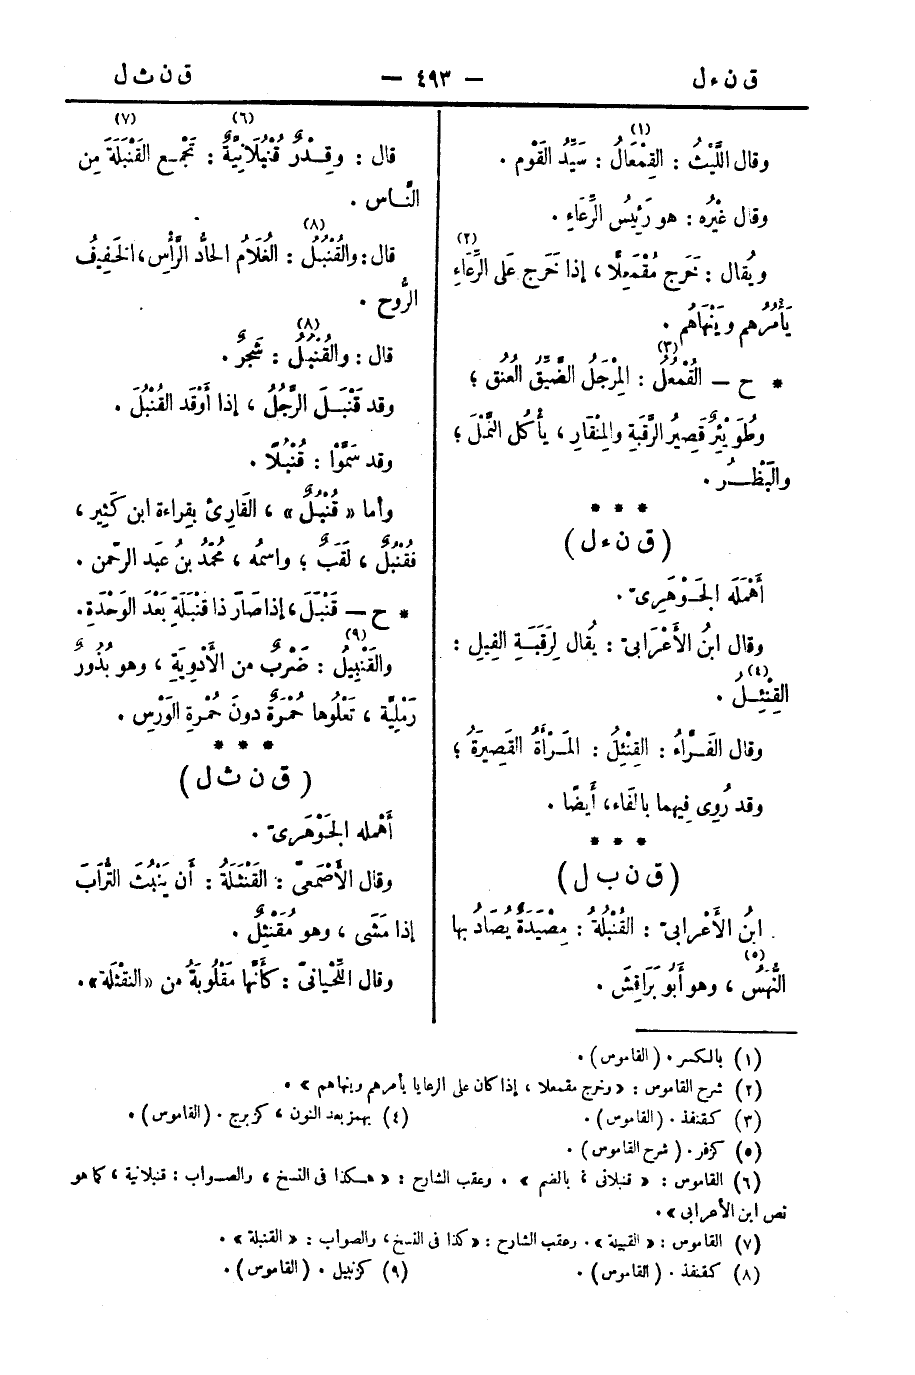 ق ن ء ل — ٤٩٣ — ق ن ث ل
وقال اللَّيْثُ : القِمْعَالُ(١) : سَيِّدُ القَوْم .
وقال غَيْرُه : هو رَئِيسُ الرِّعَاءِ .
ويُقال : خَرَج مُقْمَعِلًّا ، إذا خَرَج عَلَى الرِّعَاءِ(٢)
يَأْمُرُهم ويَنْهَاهُم .
* ح — القُمْعُلُ(٣) : المِرْجَلُ الضَّيِّقُ العُنق ؛
وطُوَيْئِرٌ قَصِيرُ الرَّقَبَةِ والمِنْقَارِ ، يأْكُل النَّمْلَ ؛
والبَظْـرُ .
* * *
( ق ن ء ل )
أَهْمَلَه الجَوْهَرِىّ .
وقال ابنُ الأَعْرَابىّ : يُقال لِرَقَبَةِ الفِيلِ :
القِنْئِلُ(٤) .
وقال الفَرَّاءُ : القِنْئِلُ : المَرْأَةُ القَصِيرَةُ ؛
وقد رُوِى فِيهما بالفَاء ، أَيضًا .
* * *
( ق ن ب ل )
ابنُ الأَعْرابىّ : القُنْبُلَةُ : مِصْيَدَةٌ يُصَادُ بها
النُّهَسُ(٥) ، وهو أَبُو بَرَاقِشَ .
قال : وقِدْرٌ قُنْبُلَانِيَّةٌ(٦) : تَجْمَع القَنْبَلَةَ(٧) مِن
النَّاس .
قال : والقُنْبُلُ(٨) : الغُلَامُ الحادُّ الرَّأْسِ ، الخَفِيفُ
الرُّوح .
قال : والقُنْبُلُ(٨) : شَجَرٌ .
وقد قَنْبَلَ الرَّجُلُ ، إذا أَوْقَد القُنْبُلَ .
وقد سَمَّوْا : قُنْبُلًا .
وأما « قُنْبُلٌ » ، القَارِئُ بقِراءة ابن كَثِير ،
فقُنْبُلٌ ، لَقَبٌ ؛ واسمُه ، مُحمّدُ بنُ عَبد الرحّمن .
* ح — قَنْبَلَ ، إذا صَارَ ذا قَنْبَلَةٍ بَعْدَ الوَحْدَةِ .
والقِنْبِيلُ(٩) : ضَرْبٌ من الأَدْوِيَةِ ، وهو بُذُورٌ
رَمْلِيَّة ، تَعْلُوها حُمْرَةٌ دونَ حُمْرةِ الوَرْسِ .
* * *
( ق ن ث ل )
أَهْمله الجَوْهَرِىّ .
وقال الأَصْمَعىّ : القَنْثَلَةُ : أَن يَنْبُثَ التُّرَابَ
إذا مَشَى ، وهو مُقَنْثِلٌ .
وقال اللِّحْيانىّ : كأَنَّها مَقْلُوبَةٌ من «النقْثلَة» .
(١) بالكسر . (القاموس) .
(٢) شرح القاموس : « وخرج مقمعلا ، إذا كان على الرعايا يأمرهم وينهاهم » .
(٣) كقنفذ . (القاموس) . (٤) بهمز بعد النون ، كزبرج . (القاموس) .
(٥) كزفر . ( شرح القاموس ) .
(٦) القاموس : « قنبلانى ؛ بالضم » . وعقب الشارح : « هكذا فى النسخ ، والصواب : قنبلانية ، كما هو
نص ابن الأعرابى » .
(٧) القاموس : « القبيلة » . وعقب الشارح : « كذا فى النسخ ، والصواب : « القنبلة » .
(٨) كقنفذ . (القاموس) . (٩) كزنبيل . (القاموس) .